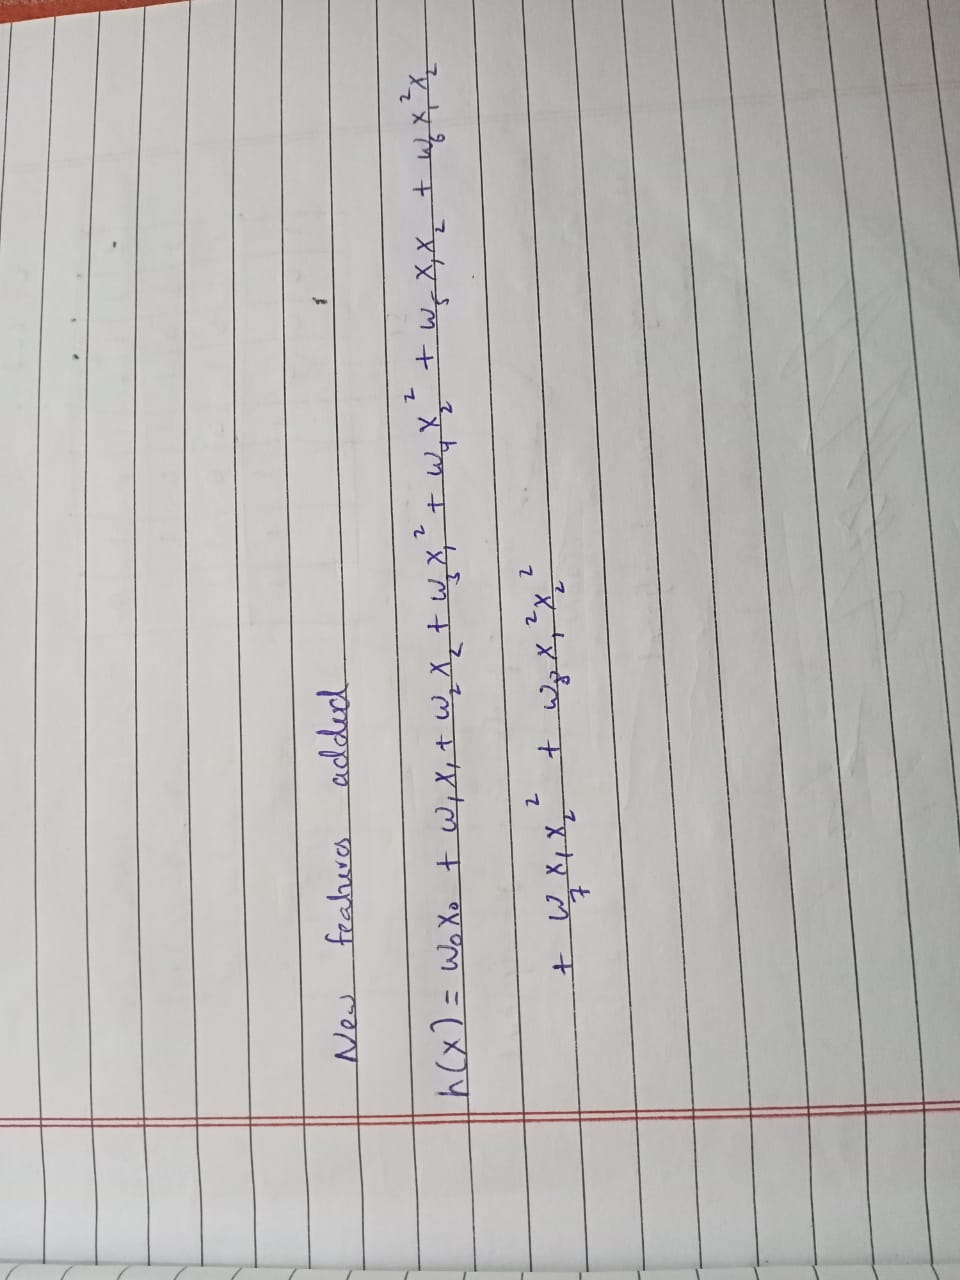 New features added
h(x) = w₀x₀ + w₁x₁ + w₂x₂ + w₃x₁² + w₄x₂² + w₅x₁x₂ + w₆x₁²x₂
+ w₇x₁x₂² + w₈x₁²x₂²